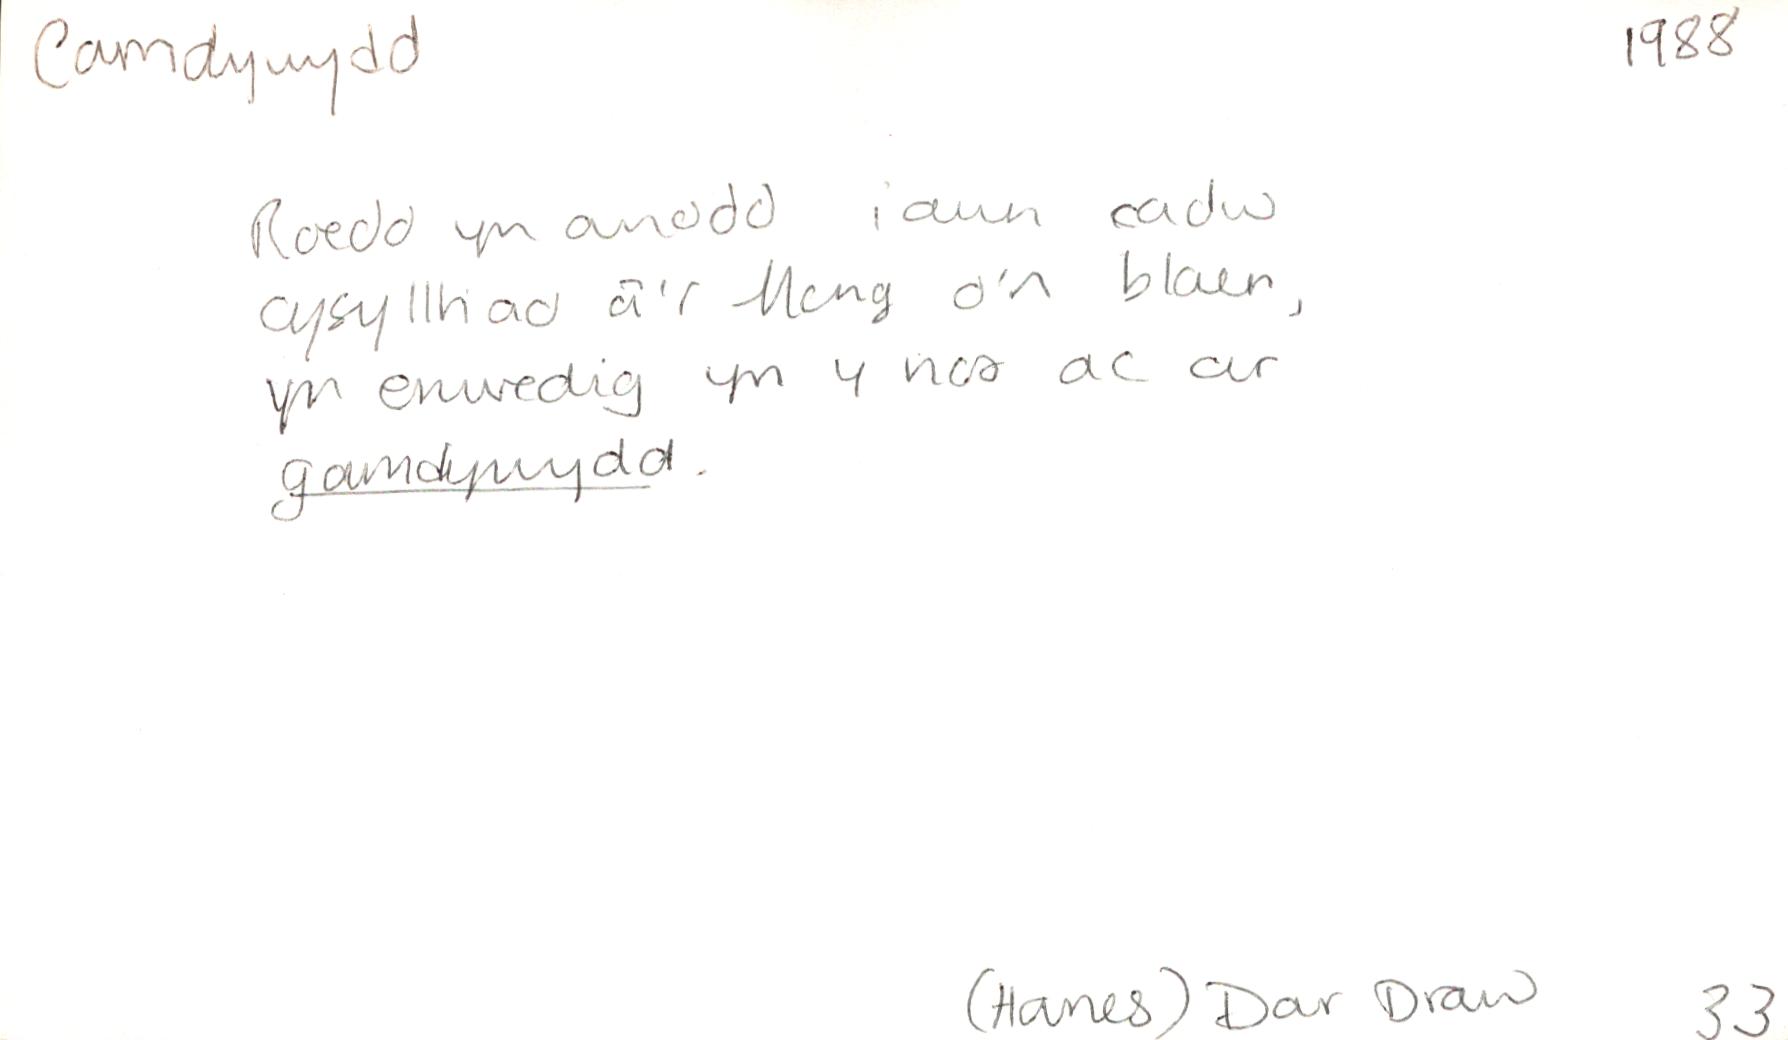 Camdywydd 1988
Roedd yn anodd iawn cadw
cysylltiad â'r llong o'n blaen,
yn enwedig yn y nos ac ar
gamdywydd.
(Hanes) Dar Draw 33